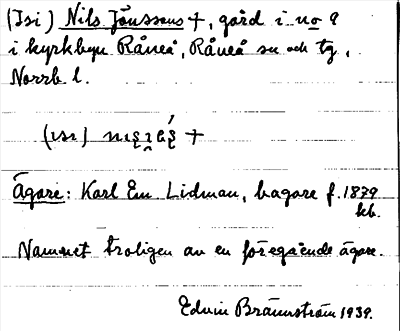 (Isi) Nils Jönssons +, gård i no 9
i kyrkbyn Råneå, Råneå sn och tg,
Norrb l.
(ısı)
Ägare: Karl Em Lidman, bagare f. 1879
Namnet troligen av en föregående ägare.
Edvin Brännström 1939.